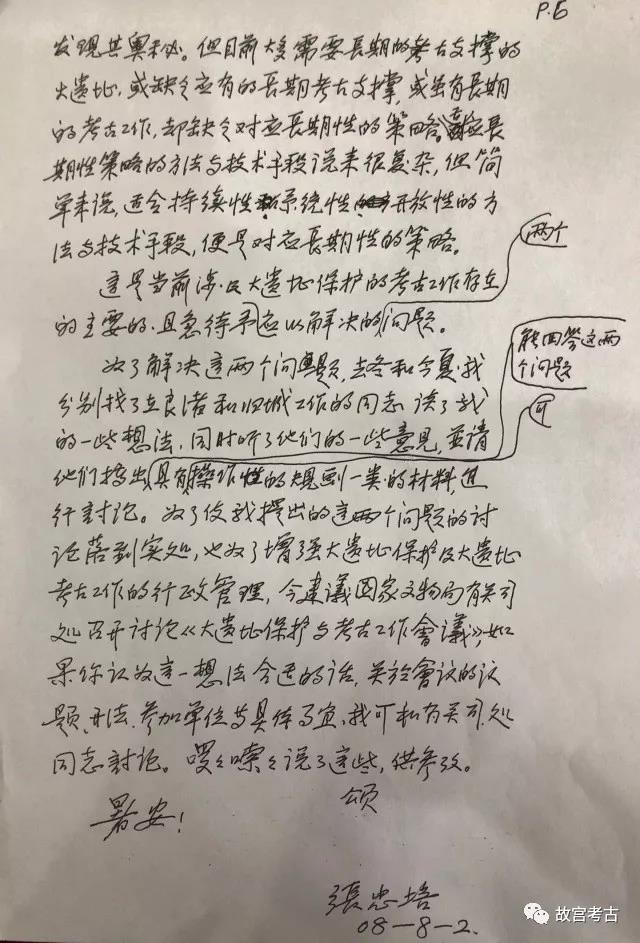 P.5
发现其奥秘。但目前大多需要長期的考古支撑的
大遗址,或缺乏应有的長期考古支撑,或虽有長期
的考古工作,却缺乏对应長期性的策略。对应長
期性策略的方法与技术手段说来很复杂,但简
单来说,适合持续性和系统性、开放性的方
法与技术手段,便是对应長期性的策略。
两个
这是当前涉及大遗址保护的考古工作存在
的主要的、且急待予应以解决的问题。
能回答这两
个问题
可
为了解决这两个问题,去冬和今夏,我
分别找了在良渚和旧城工作的同志谈了我
的一些想法,同时听了他们的一些意见,並请
他们搞出具有操作性的规划一类的材料,进
行討论。为了使我提出的这两个问题的讨
论落到实处,也为了增强大遗址保护及大遗址
考古工作的行政管理,今建議国家文物局有关司
处召开讨论《大遗址保护与考古工作會議》,如
果你认为这一想法合适的话,关於會议的议
题、开法、参加单位与具体事宜,我可和有关司、处
同志討论。啰啰嗦嗦说了这些,供参攷。
頌
暑安!
張忠培
08-8-2.
故宫考古